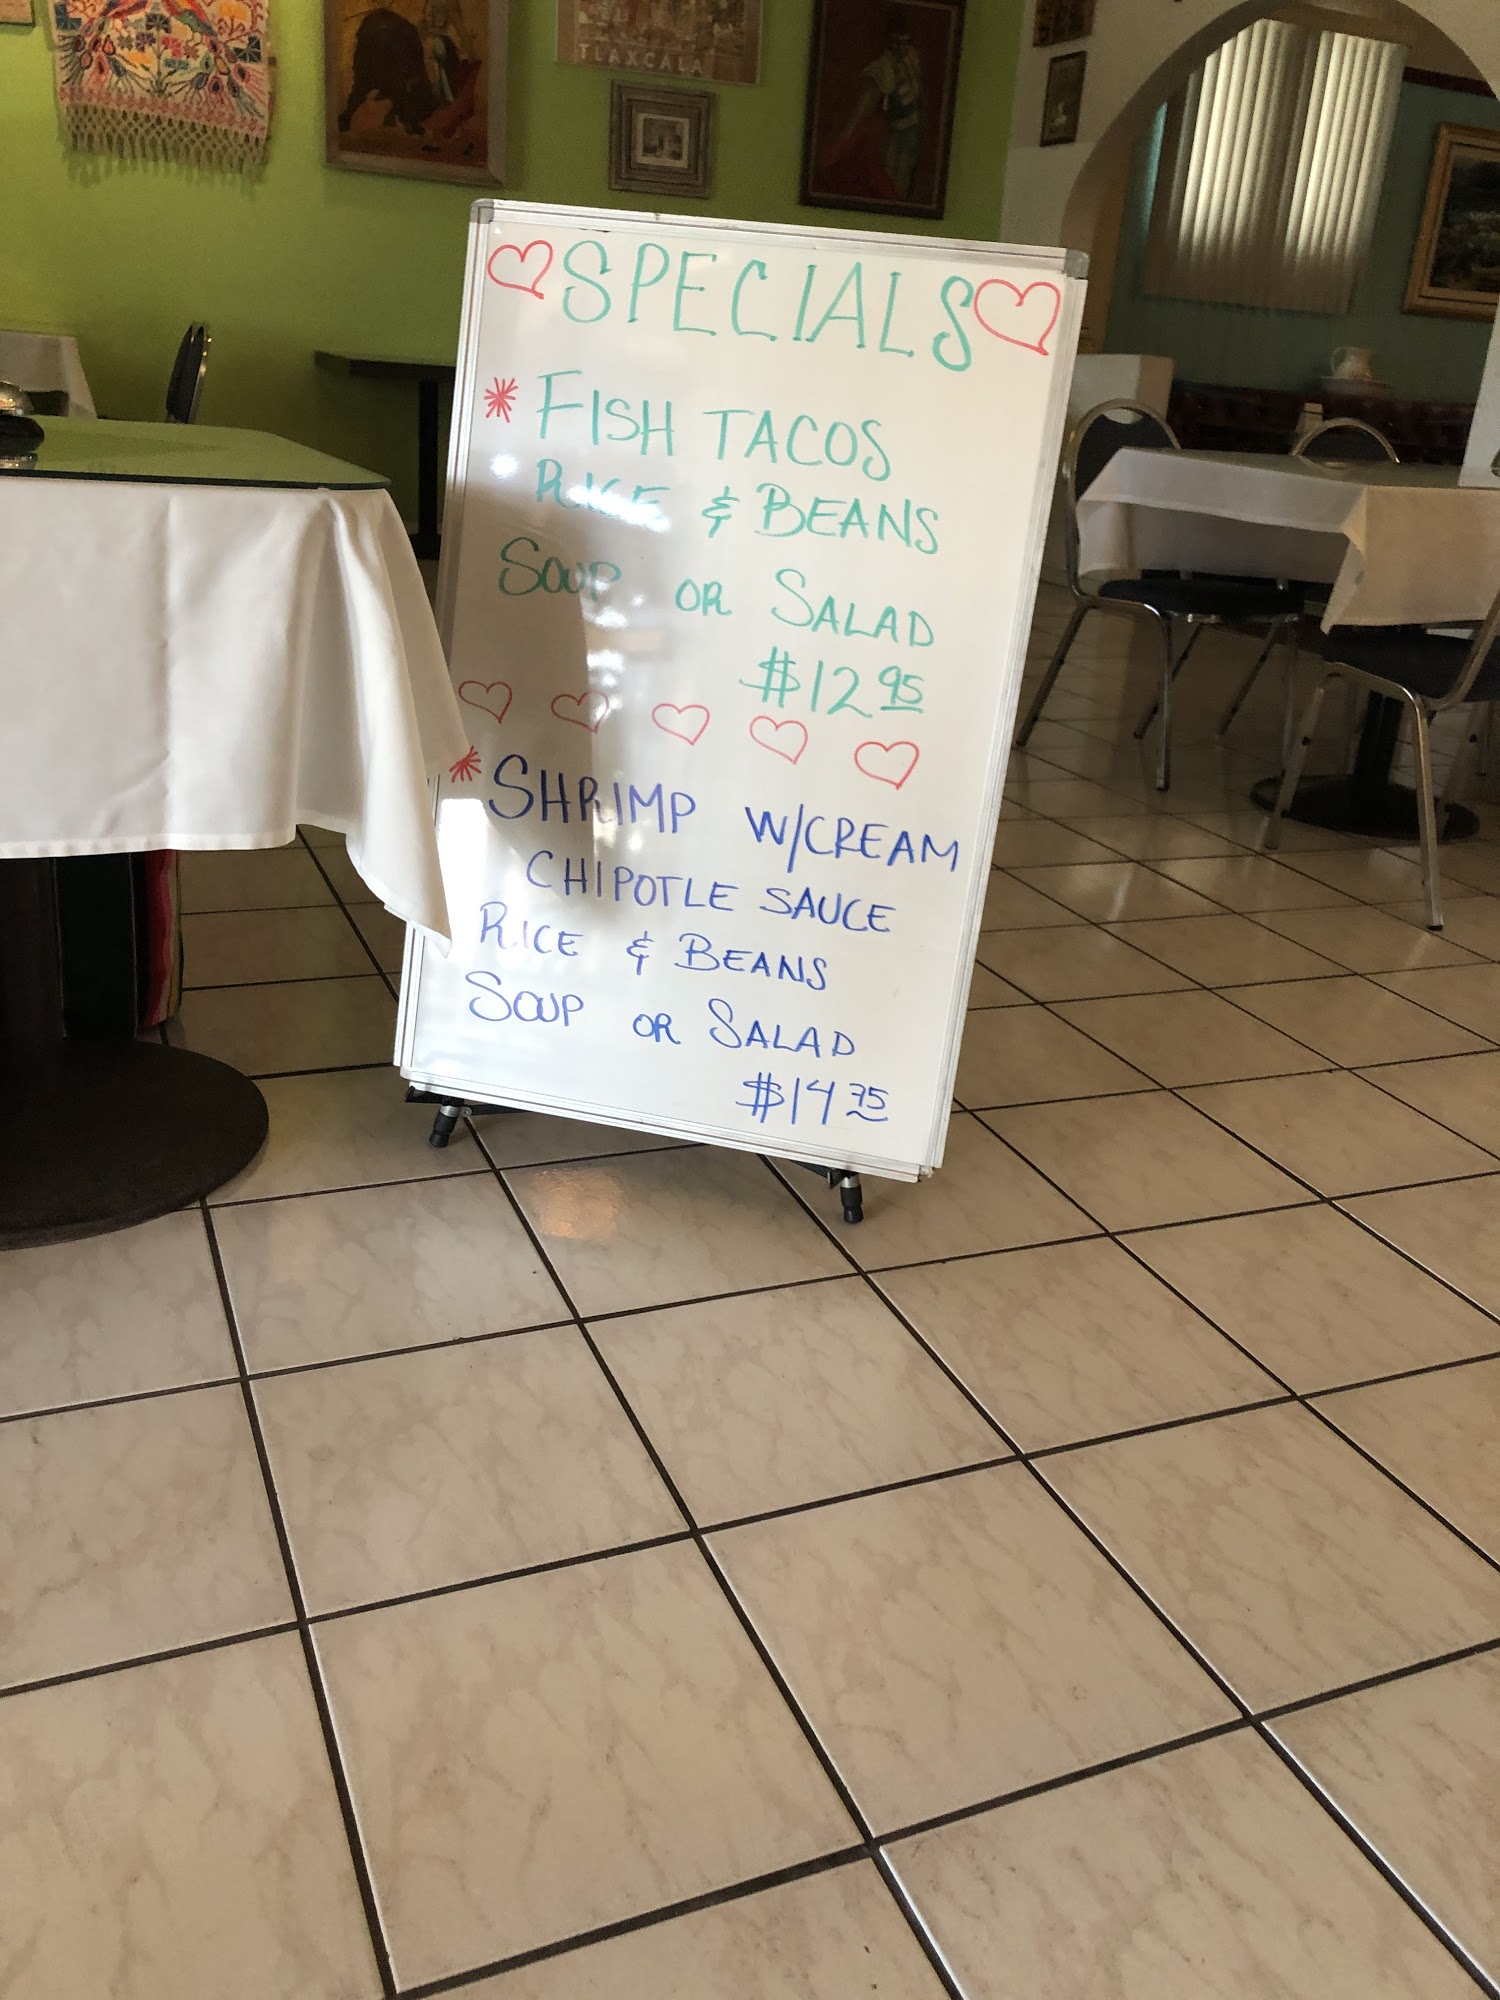 TLAXCALA
SPECIALS
* FISH TACOS
RICE & BEANS
SOUP OR SALAD
$12 95
* SHRIMP W/CREAM
CHIPOTLE SAUCE
RICE & BEANS
SOUP OR SALAD
$14 75